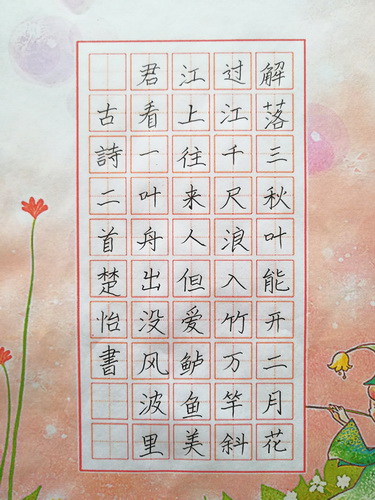 解落三秋叶能开二月花
过江千尺浪入竹万竿斜
江上往来人但爱鲈鱼美
君看一叶舟出没风波里
古詩二首楚怡書